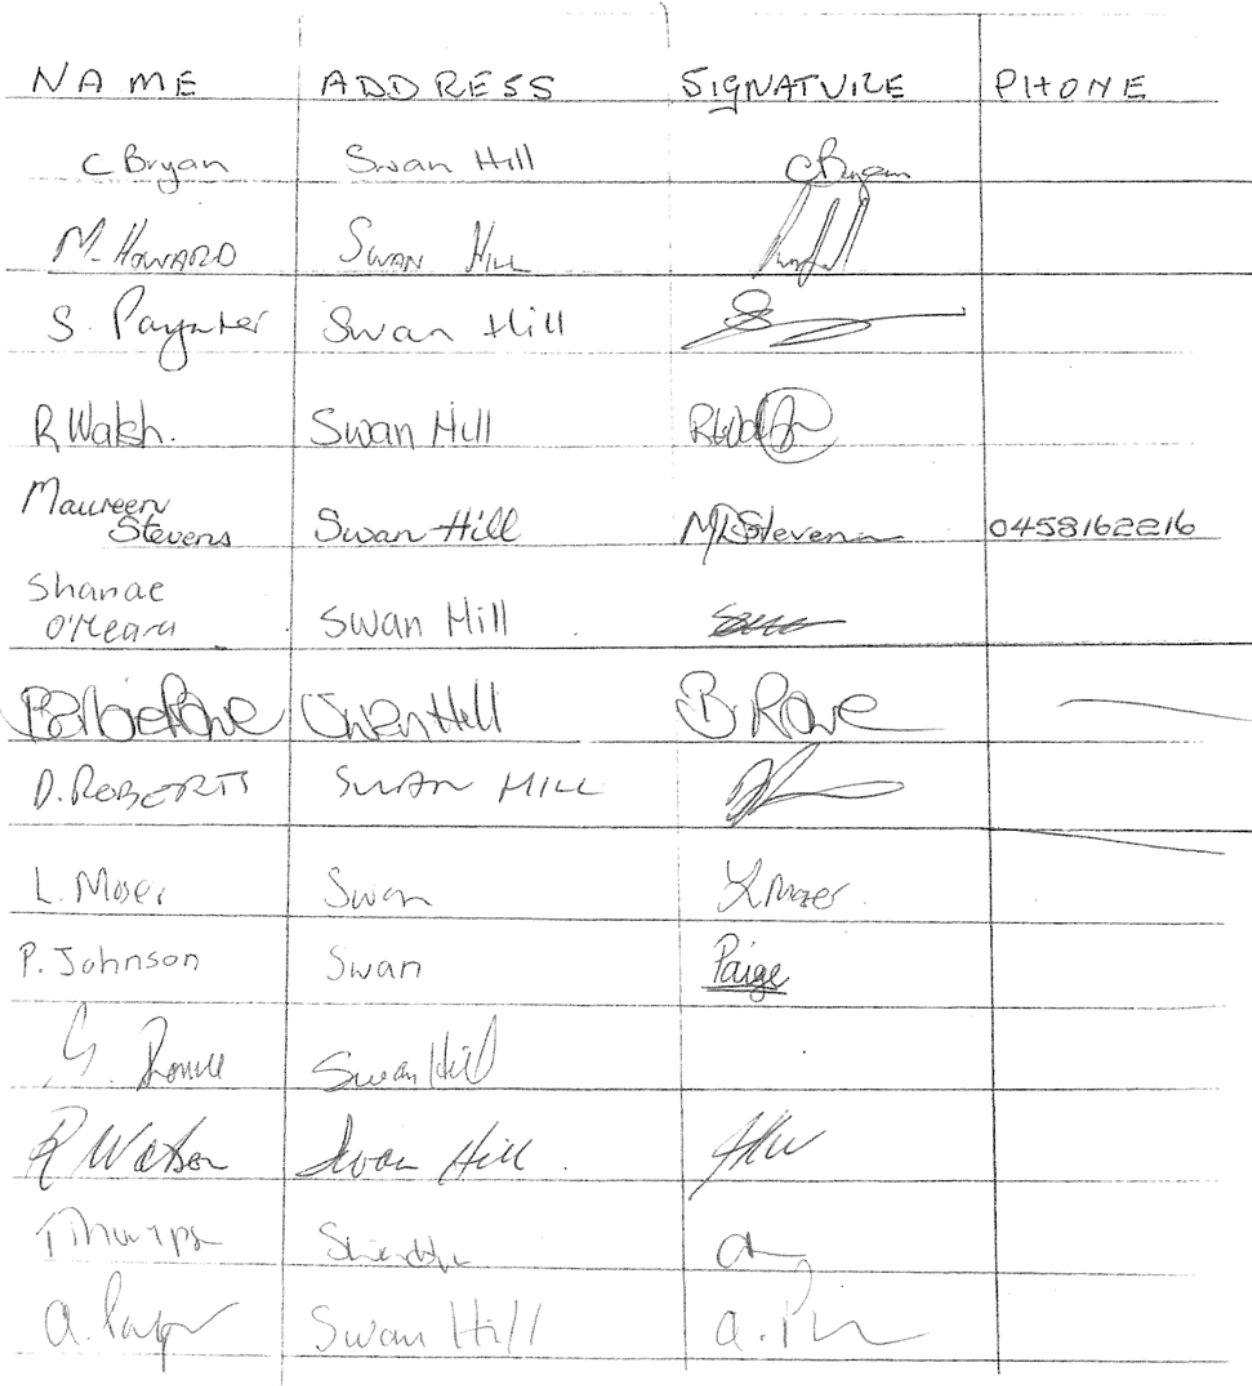 NAME ADDRESS SIGNATURE PHONE
C Bryan Swan Hill CBryan
M. HOWARD SWAN HILL
S. Paynter Swan Hill
R Walsh. Swan Hill RWalsh
Maureen
Stevens Swan Hill MLStevens 0458162216
Shanae
O'Meara Swan Hill
Barbie Rowe Swan Hill B Rowe
D. ROBERTS SWAN HILL
L. Moser Swan L Moser
P. Johnson Swan Paige
G. Swan Hill
R Watson Swan Hill
Swan Hill